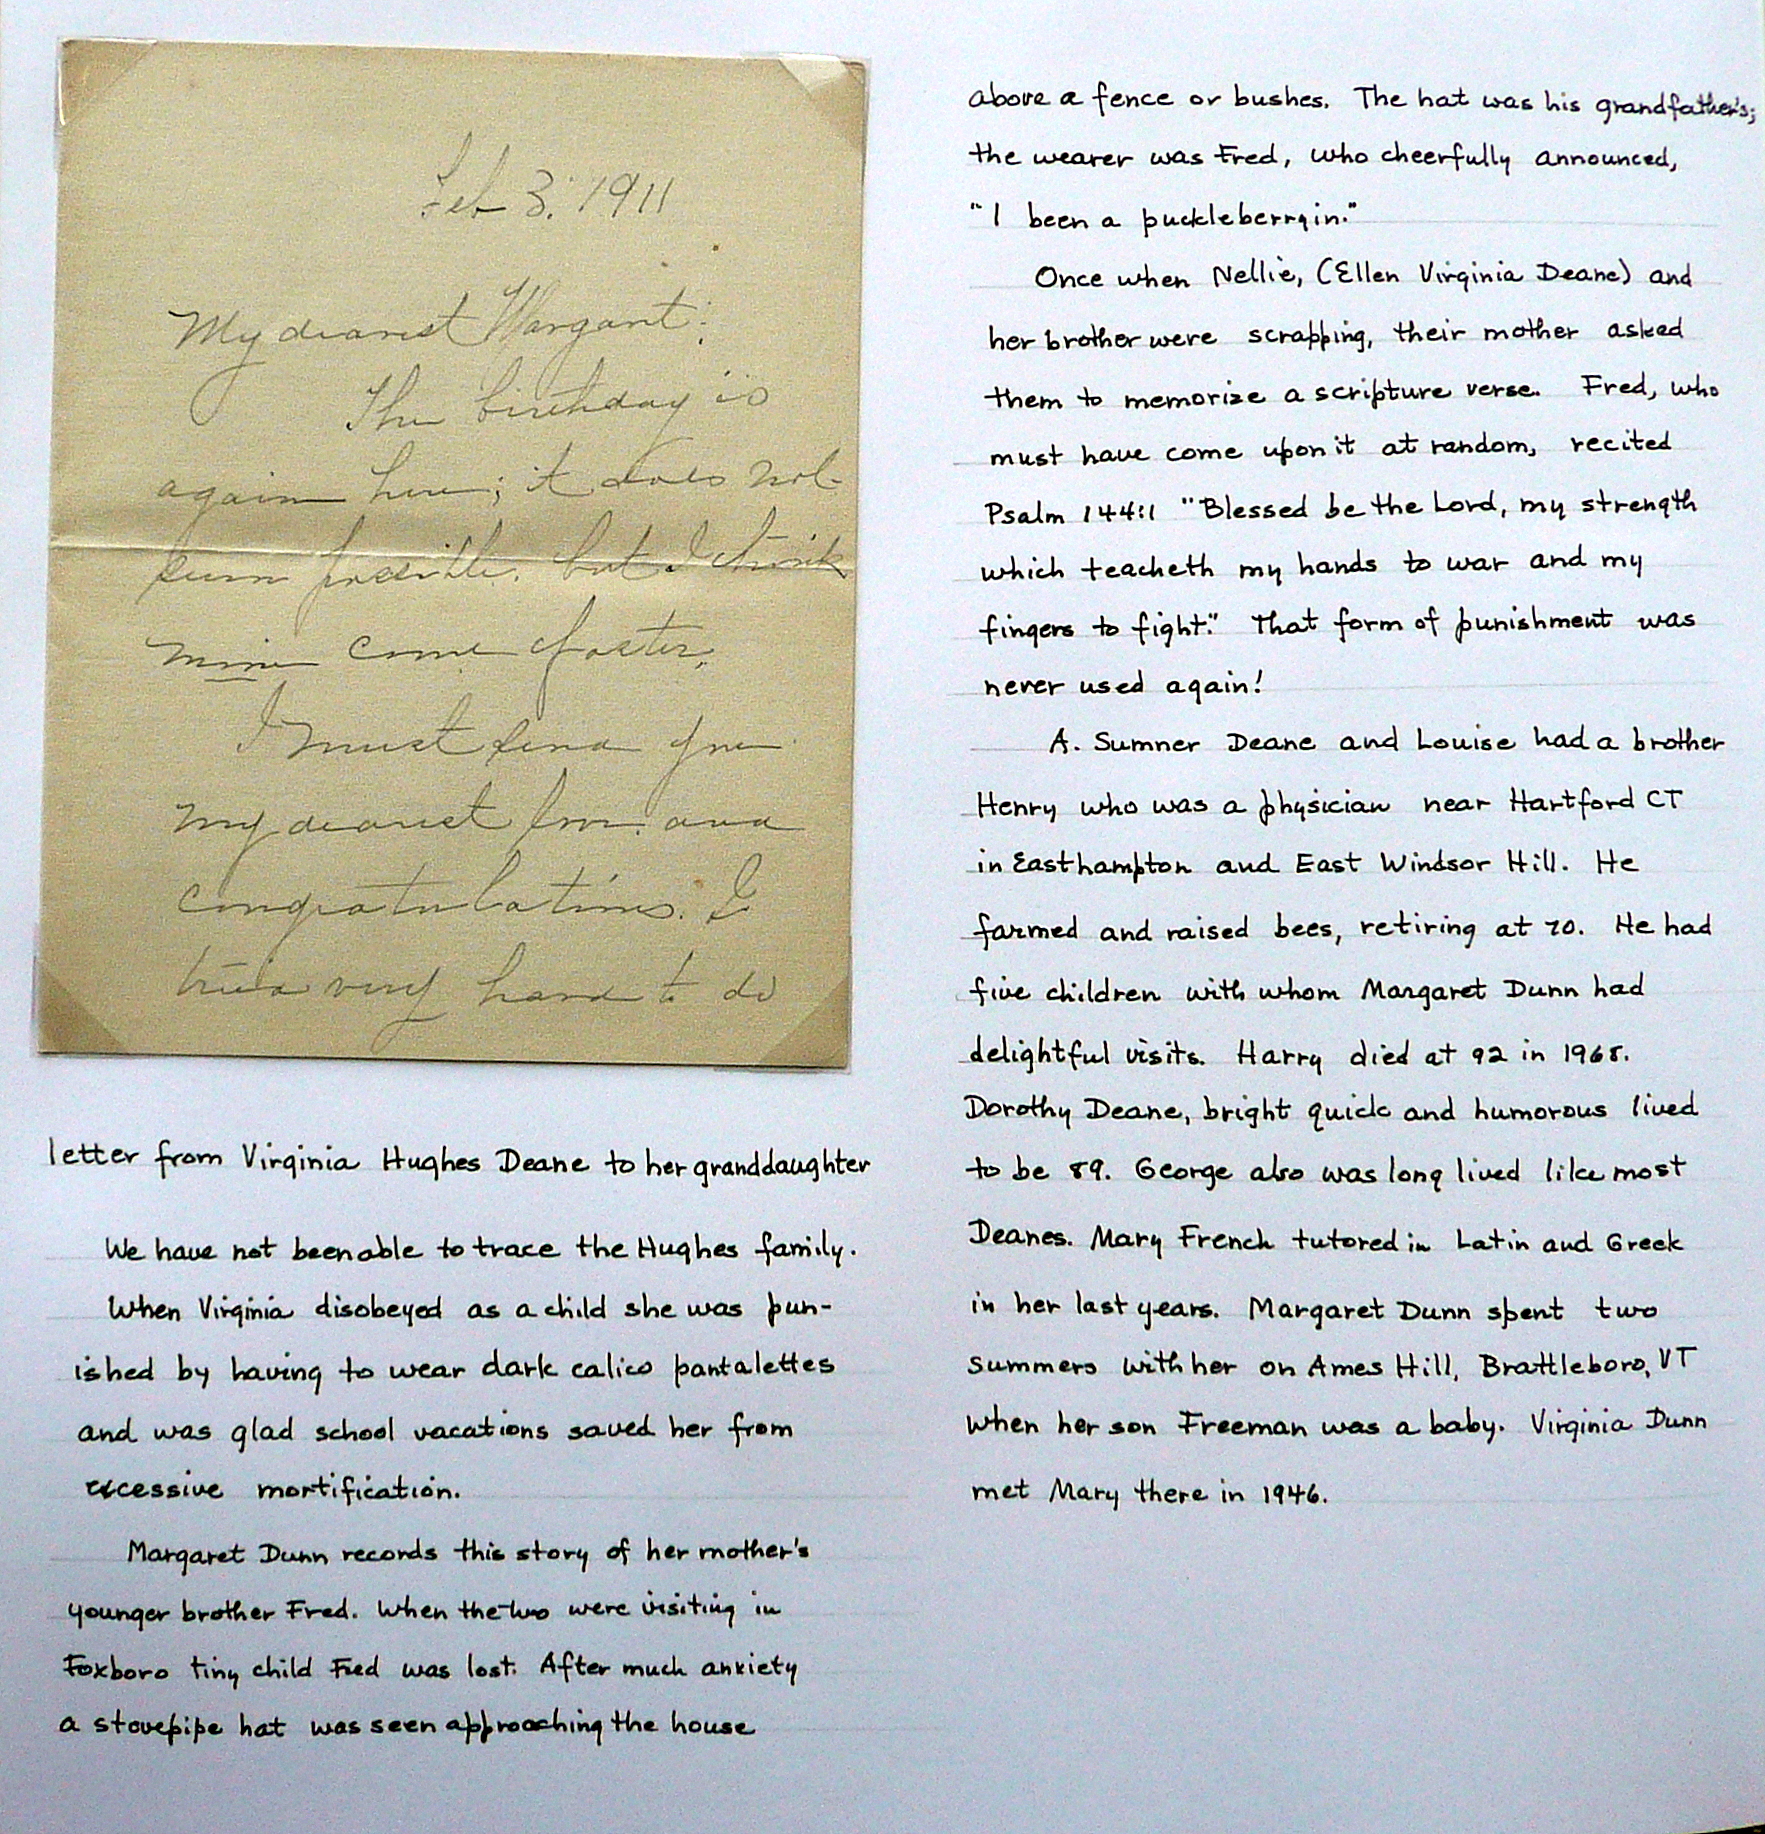 Feb 3. 1911
My dearest Margaret:
The birthday is
again here; it does not
seem possible, but I think
mine come faster.
I must send you
my dearest love and
congratulations. I
tried very hard to do
letter from Virginia Hughes Deane to her granddaughter
We have not been able to trace the Hughes family.
When Virginia disobeyed as a child she was pun-
ished by having to wear dark calico pantalettes
and was glad school vacations saved her from
excessive mortification.
Margaret Dunn records this story of her mother's
younger brother Fred. When the two were visiting in
Foxboro tiny child Fred was lost. After much anxiety
a stovepipe hat was seen approaching the house
above a fence or bushes. The hat was his grandfather's;
the wearer was Fred, who cheerfully announced,
"I been a puckleberryin."
Once when Nellie, (Ellen Virginia Deane) and
her brother were scrapping, their mother asked
them to memorize a scripture verse. Fred, who
must have come upon it at random, recited
Psalm 144:1 "Blessed be the Lord, my strength
which teacheth my hands to war and my
fingers to fight." That form of punishment was
never used again!
A. Sumner Deane and Louise had a brother
Henry who was a physician near Hartford CT
in Easthampton and East Windsor Hill. He
farmed and raised bees, retiring at 70. He had
five children with whom Margaret Dunn had
delightful visits. Harry died at 92 in 1968.
Dorothy Deane, bright quick and humorous lived
to be 89. George also was long lived like most
Deanes. Mary French tutored in Latin and Greek
in her last years. Margaret Dunn spent two
summers with her on Ames Hill, Brattleboro, VT
when her son Freeman was a baby. Virginia Dunn
met Mary there in 1946.